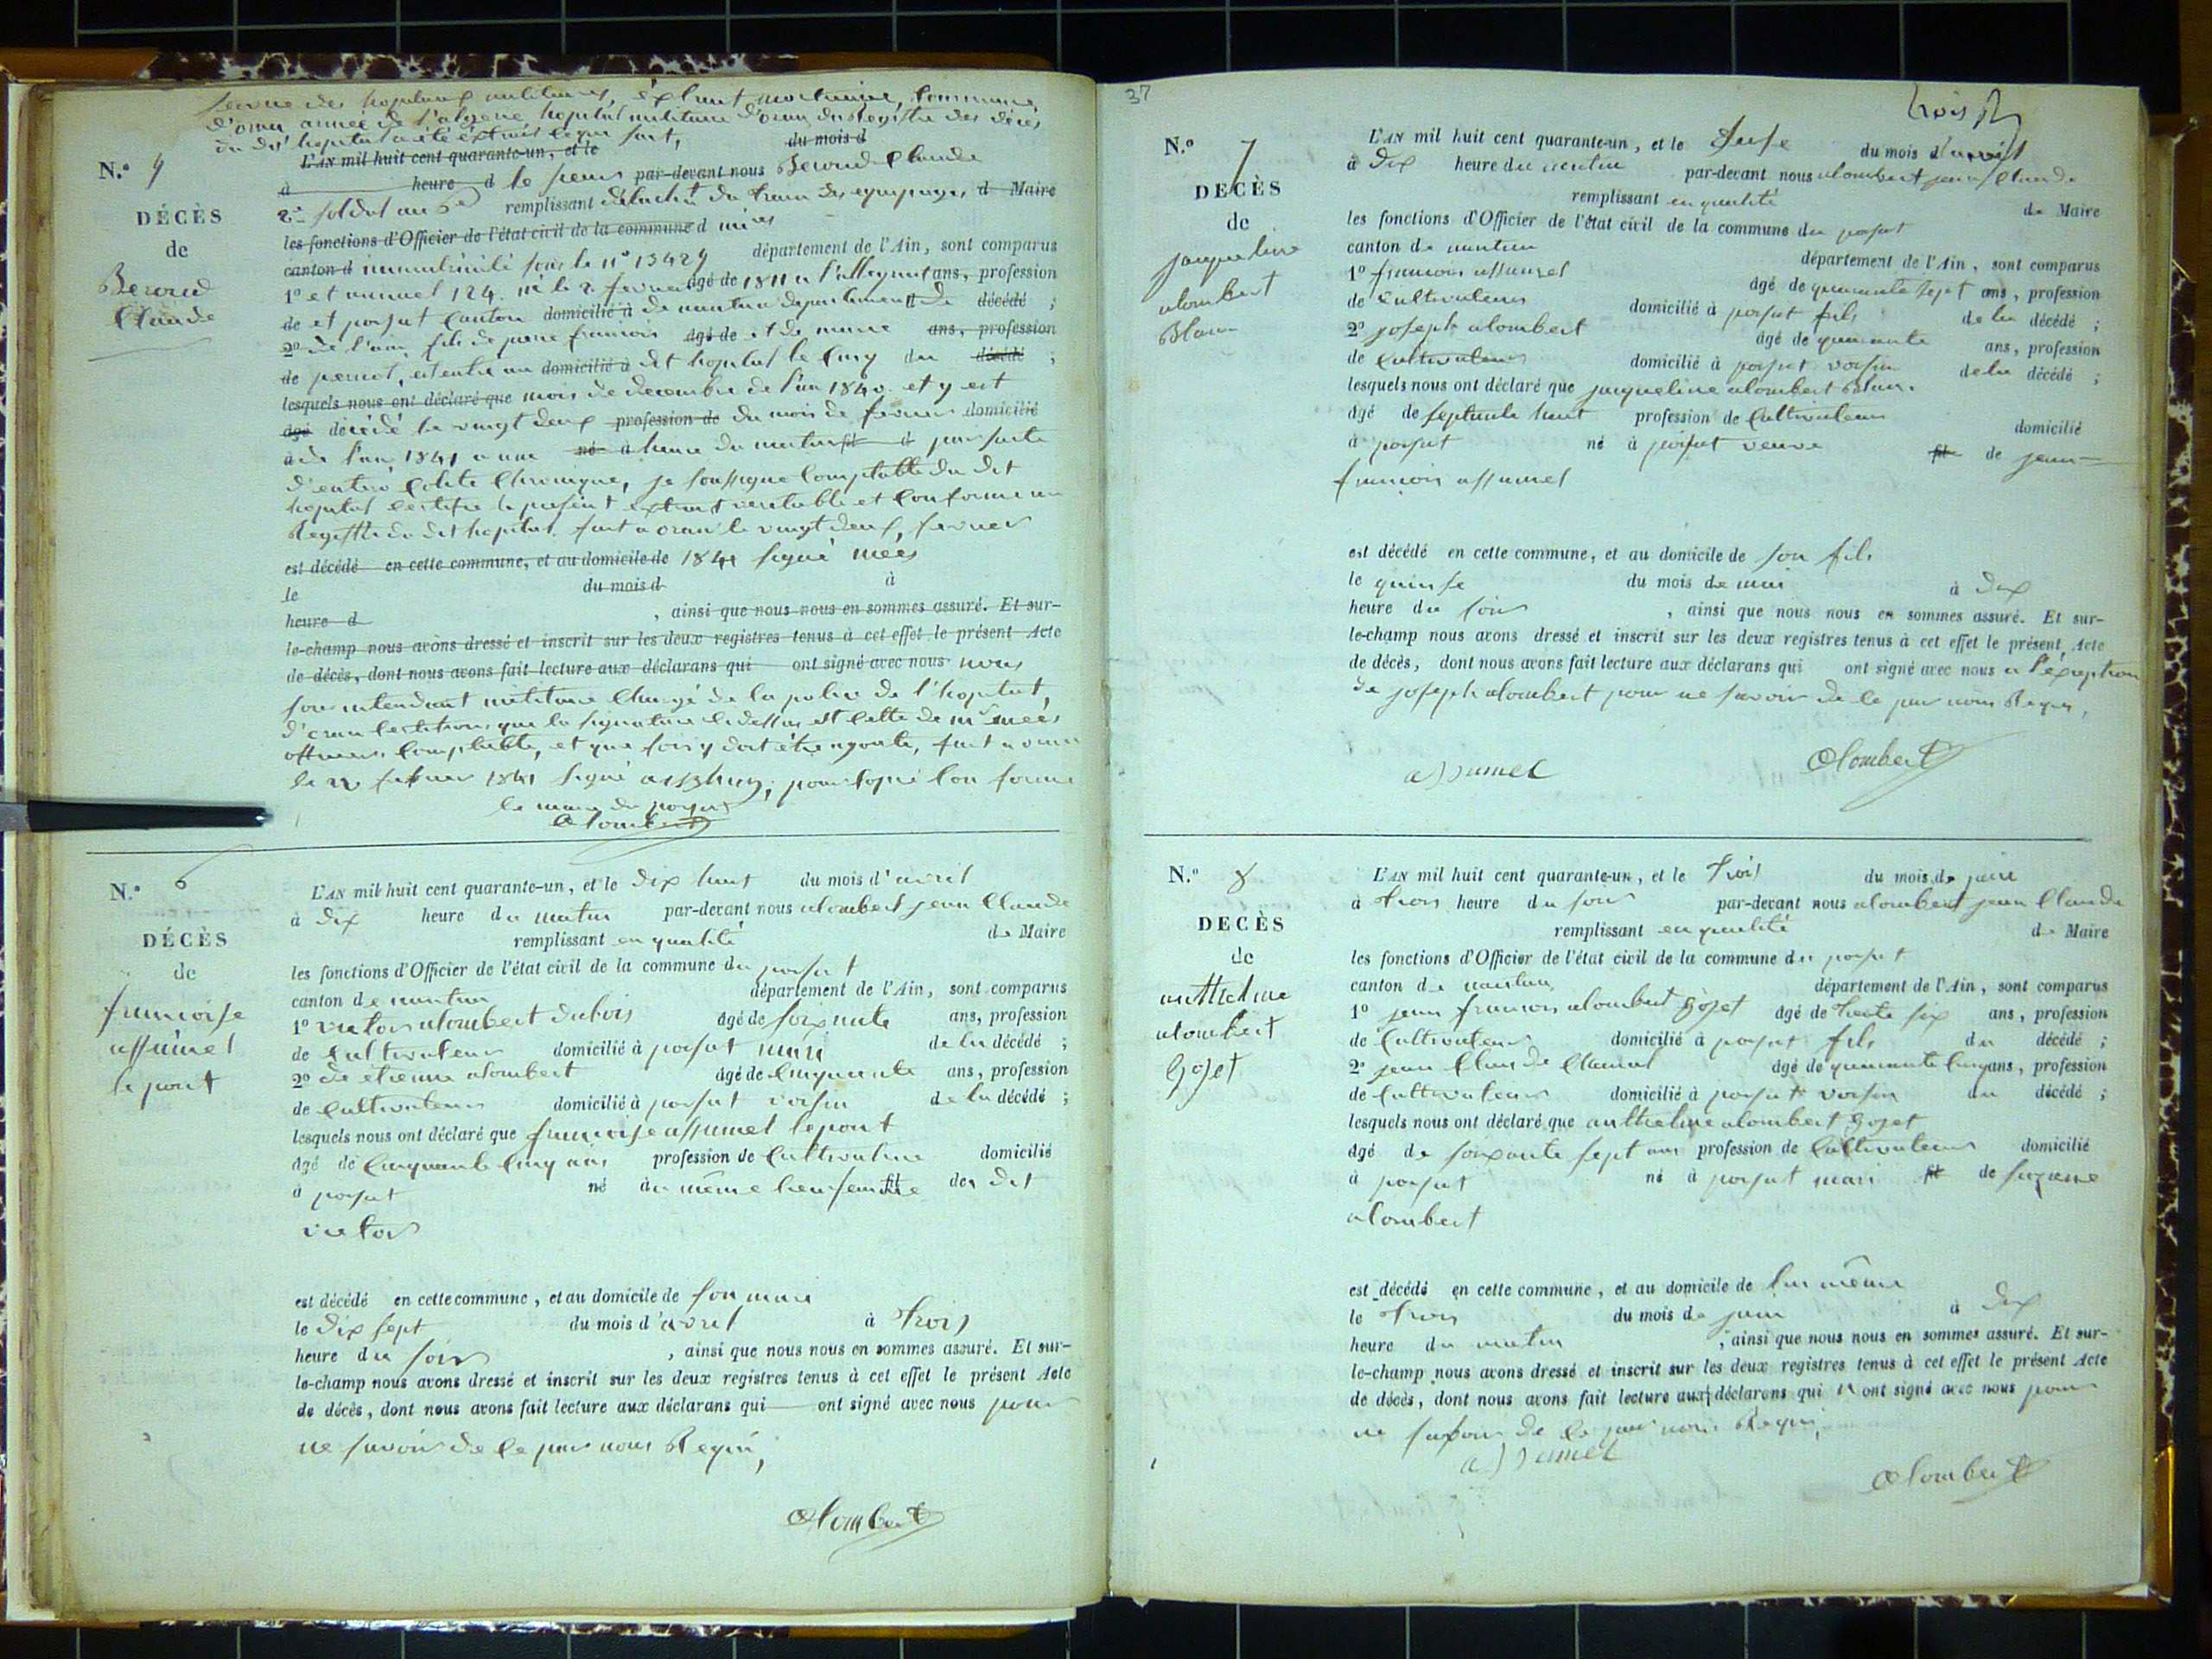 service des hopitaux militaires, extrait mortuaire, commune
d'oran armée de l'algerie hopital militaire d'oran du Registre des décès
du dit hopital a été extrait ce qui suit,
L'AN mil huit cent quarante-un, et le du mois d
N.º
à heure d le sieur par-devant nous Beroud Claude
2e soldat au remplissant détaché du train des equipages d Maire
DÉCÈS
les fonctions d'Officier de l'état civil de la commune d
de
canton d immatriculé sous le n° 13429 département de l'Ain, sont comparus
Beroud
Claude
1º et annuel 124. né le 2 fevrier âgé de 1811 a ans, profession
de et porsat canton domicilié à de nantua departement de décédé ;
2º de l'ain, fils de pierre francois âgé de et de marie ans, profession
de pernot, est entré au domicilié à dit hopital le cinq du décédé ;
lesquels nous ont déclaré que mois de decembre de l'an 1840. et y est
âgé décédé le vingt deux profession de du mois de fevrier domicilié
à de l'an 1841 a une né à heure du matin fil d par suite
d'entero colite chronique, je soussigné comptable du dit
hopital certifie le present extrait veritable et conforme au
Registre du dit hopital. fait a oran le vingt deux, fevrier
est décédé en cette commune, et au domicile de 1841 signé mées
le du mois d à
heure d , ainsi que nous nous en sommes assuré. Et sur-
le-champ nous avons dressé et inscrit sur les deux registres tenus à cet effet le présent Acte
de décès, dont nous avons fait lecture aux déclarans qui ont signé avec nous nous
sous intendant militaire chargé de la police de l'hopital,
d'oran certifions que la signature cidessus est celle de mr mées
officier comptable, et que foi y doit être ajouté, fait a oran
le 22 fevrier 1841 signé pour copie conforme
le maire du porsat
alombert
N.º 6
L'AN mil huit cent quarante-un, et le dix huit du mois d'avril
à dix heure du matin par-devant nous alombert jean Claude
remplissant en qualité de Maire
DÉCÈS
de
francoise
assumel
le pont
les fonctions d'Officier de l'état civil de la commune du porsat
canton de nantua département de l'Ain, sont comparus
1º victor alombert dubois âgé de soixante ans, profession
de cultivateur domicilié à porsat mari de la décédé ;
2º de etienne alombert âgé de cinquante ans, profession
de cultivateur domicilié à porsat voisin de la décédé ;
lesquels nous ont déclaré que francoise assumel lepont
âgé de cinquante cinq ans profession de cultivatrice domicilié
à porsat né au même lieu femme fil de du dit
victor
est décédé en cette commune, et au domicile de son mari
le dix sept du mois d'avril à trois
heure du soir , ainsi que nous nous en sommes assuré. Et sur-
le-champ nous avons dressé et inscrit sur les deux registres tenus à cet effet le présent Acte
de décès, dont nous avons fait lecture aux déclarans qui ont signé avec nous pour
ne savoir de ce par nous Requi,
alombert
37
N.º 7
L'AN mil huit cent quarante-un, et le du mois d
à dix heure du matin par-devant nous alombert jean Claude
remplissant en qualité de Maire
DECÈS
de
jaqueline
alombert
Blanc
les fonctions d'Officier de l'état civil de la commune du porsat
canton de nantua département de l'Ain, sont comparus
1º francois assumel âgé de quarante sept ans, profession
de cultivateur domicilié à porsat fils de la décédé ;
2º joseph alombert âgé de quarante ans, profession
de cultivateur domicilié à porsat voisin de la décédé ;
lesquels nous ont déclaré que jaqueline alombert Blanc
âgé de septante huit profession de cultivateur domicilié
à porsat né à porsat veuve fil de jean
francois assumel
est décédé en cette commune, et au domicile de son fils
le quinse du mois de mai à dix
heure du soir , ainsi que nous nous en sommes assuré. Et sur-
le-champ nous avons dressé et inscrit sur les deux registres tenus à cet effet le présent Acte
de décès, dont nous avons fait lecture aux déclarans qui ont signé avec nous a l'exeption
de joseph alombert pour ne savoir de ce par nous Requi,
assumel alombert
N.º 8
L'AN mil huit cent quarante-un, et le trois du mois de juin
à trois heure du soir par-devant nous alombert jean Claude
remplissant en qualité de Maire
DECÈS
de
anthelme
alombert
gojet
les fonctions d'Officier de l'état civil de la commune du porsat
canton de nantua département de l'Ain, sont comparus
1º jean francois alombert gojet âgé de trente six ans, profession
de cultivateur domicilié à porsat fils du décédé ;
2º jean Claude âgé de quarante cinq ans, profession
de cultivateur domicilié à porsat voisin du décédé ;
lesquels nous ont déclaré que anthelme alombert gojet
âgé de soixante sept ans profession de cultivateur domicilié
à porsat né à porsat mari fil de suzanne
alombert
est décédé en cette commune, et au domicile de lui même
le trois du mois de juin à dix
heure du matin , ainsi que nous nous en sommes assuré. Et sur-
le-champ nous avons dressé et inscrit sur les deux registres tenus à cet effet le présent Acte
de décès, dont nous avons fait lecture aux déclarans qui n ont signé avec nous pour
ne savoir de ce par nous Requi,
assumel
alombert